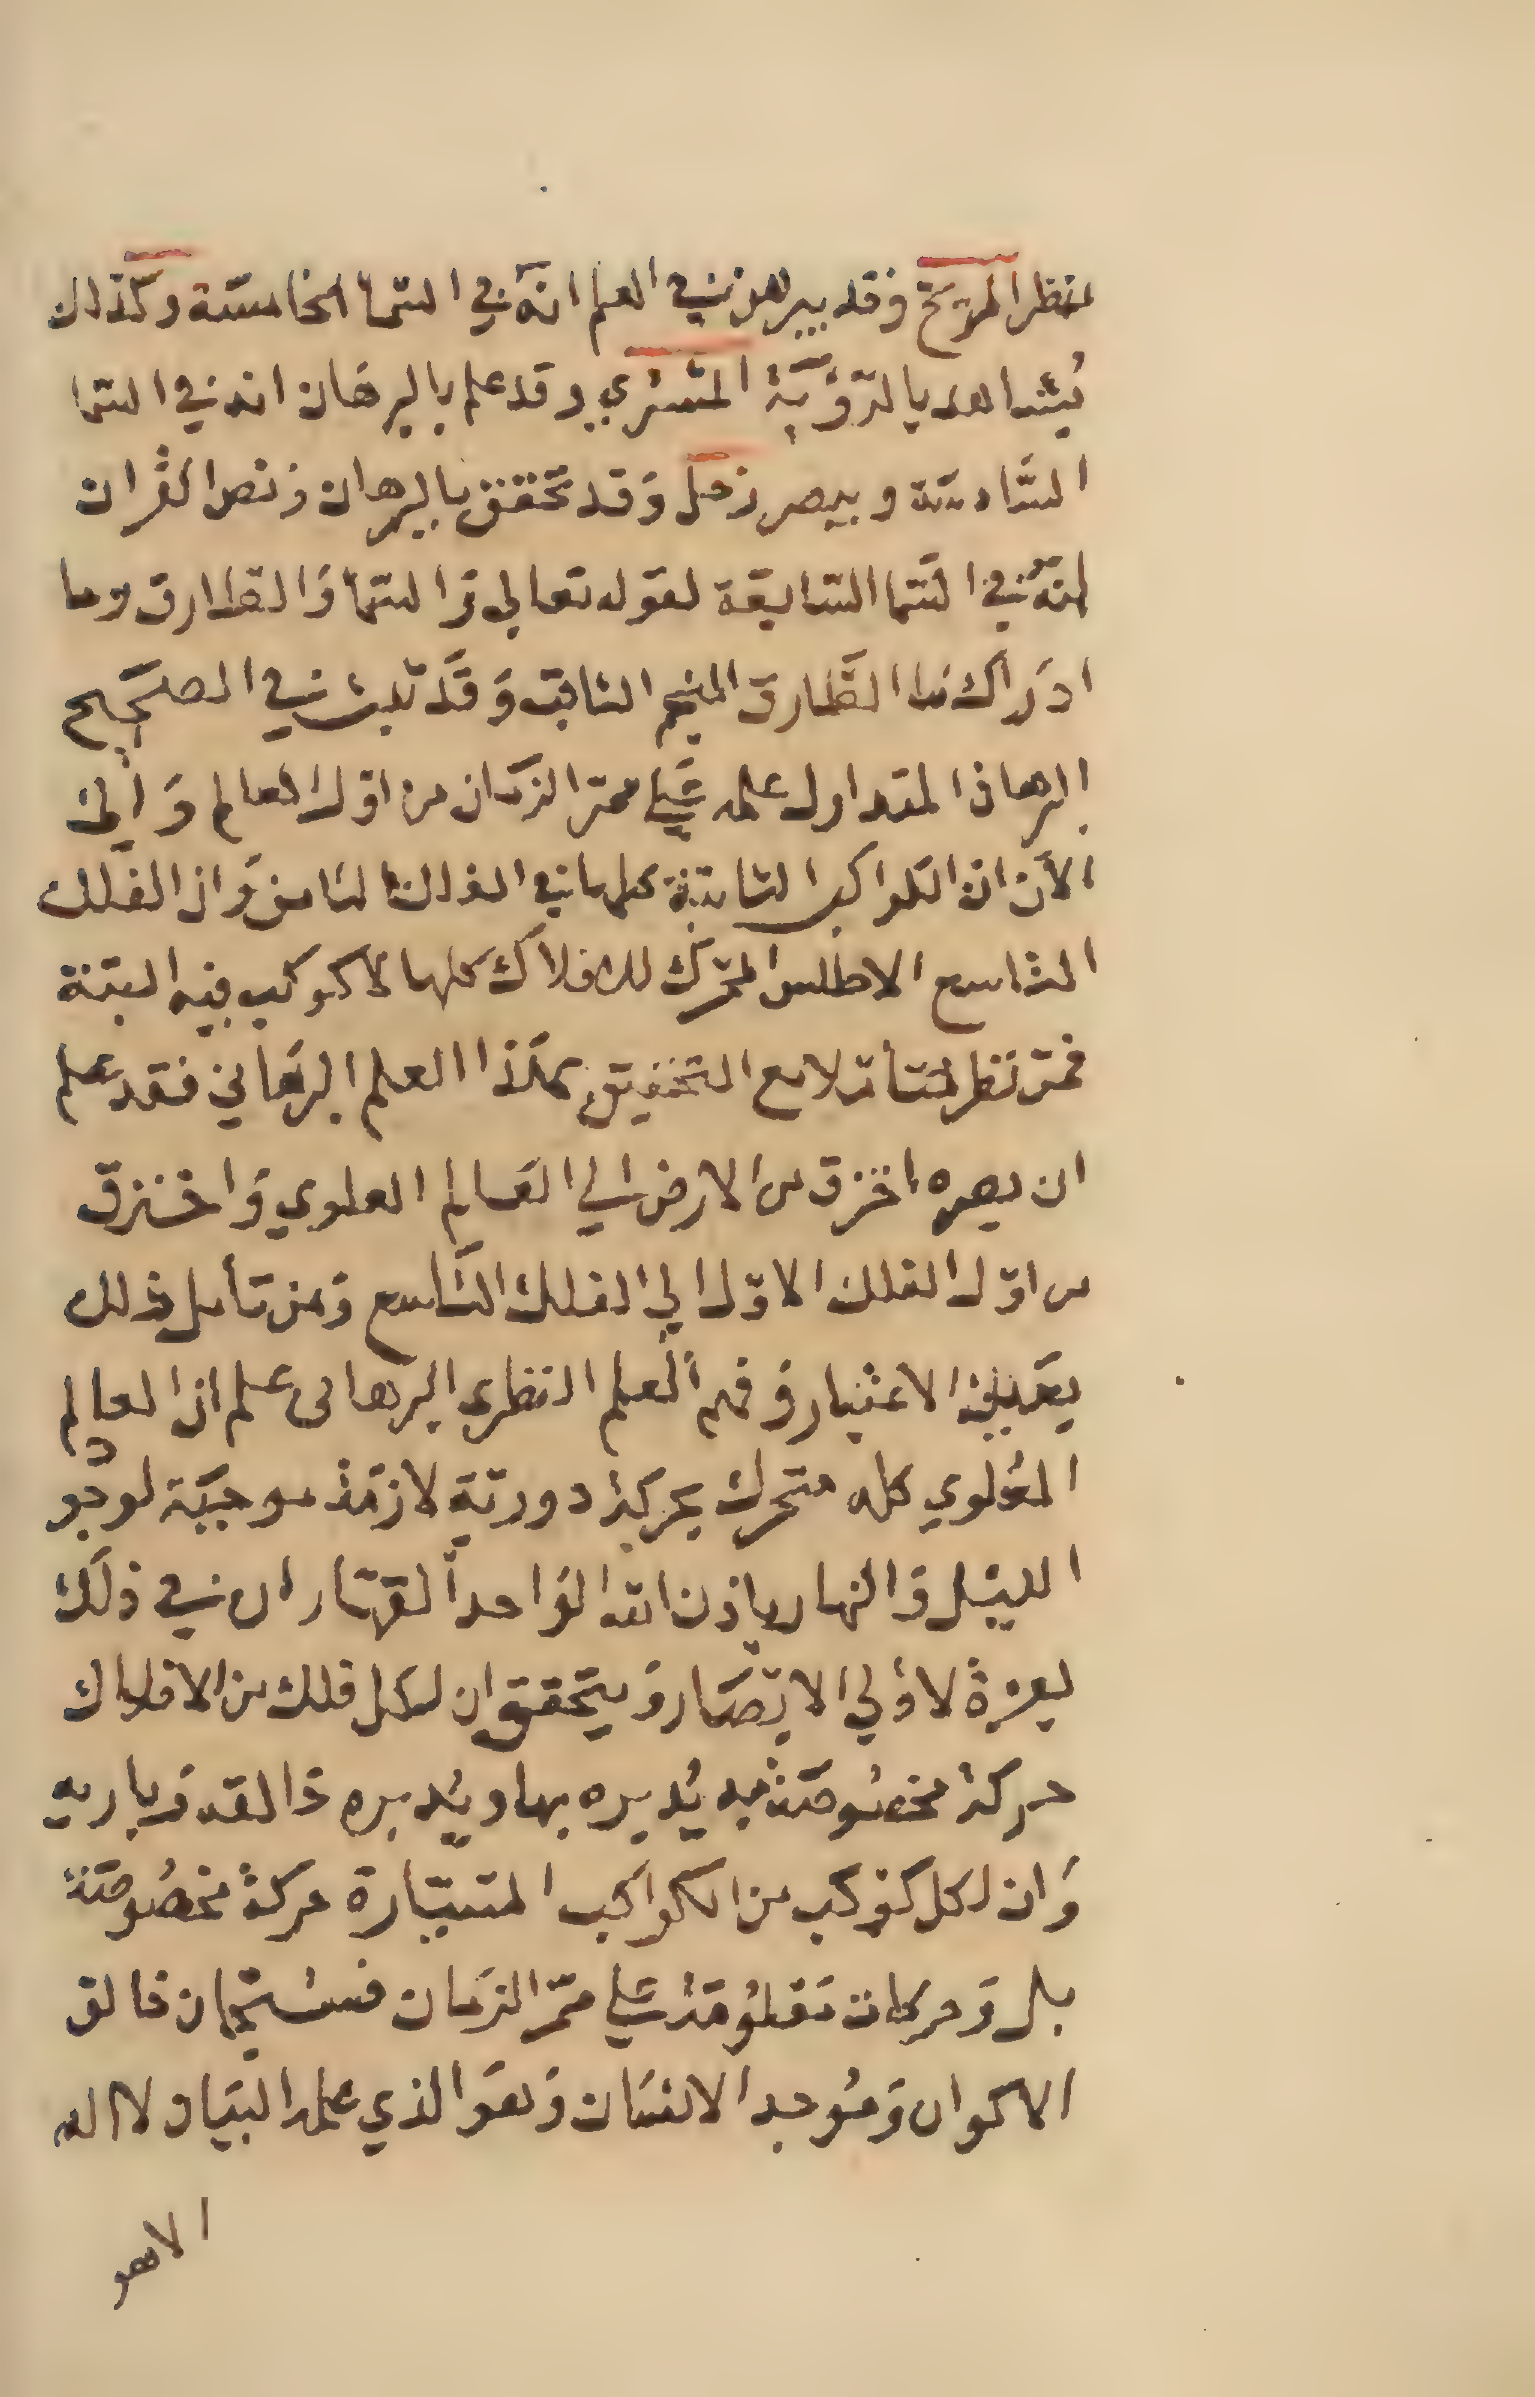 منظر المريخ وقد يبرهن في العلم انه في السما الخامسة وكذلك
يُشاهد بالرؤية المشتري وقد علم بالبرهان انه في السما
السادسة ويبصر زحل وقد تحقق بالبرهان ونص القران
انه في السما السابعة لقوله تعالي والسما والطارق وما
ادراك ما الطارق النجم الثاقب وقد ثبت في الصحيح
البرهان المتداول علمه علي ممر الزمان من اول العالم والي
الآن ان الكواكب الثابتة كلها في الفلك الثامن وان الفلك
التاسع الاطلس المحرك للافلاك كلها لا كوكب فيه البتة
فمن نظر متأملا مع التحقيق بهذا العلم البرهاني فقد علم
ان بصره اخترق من الارض الي العالم العلوي واخترق
من اول الفلك الاول الي الفلك التاسع ومن تأمل ذلك
بعين الاعتبار وفهم العلم النظري البرهاني علم ان العالم
العُلوي كله متحرك بحركة دورية لازمة موجبة لوجود
الليل والنهار باذن الله الواحد القهار ان في ذلك
لعبرة لاولي الابصار ويتحقق ان لكل فلك من الافلاك
حركة مخصُوصة به يُديره بها ويُدبره خالقه وباريه
وان لكل كوكب من الكواكب السيارة حركة مخصُوصة
بل وحركات معلُومة علي ممر الزمان فسُبحان خالق
الاكوان ومُوجد الانسان وهو الذي علمه البيان لا اله
الا هو